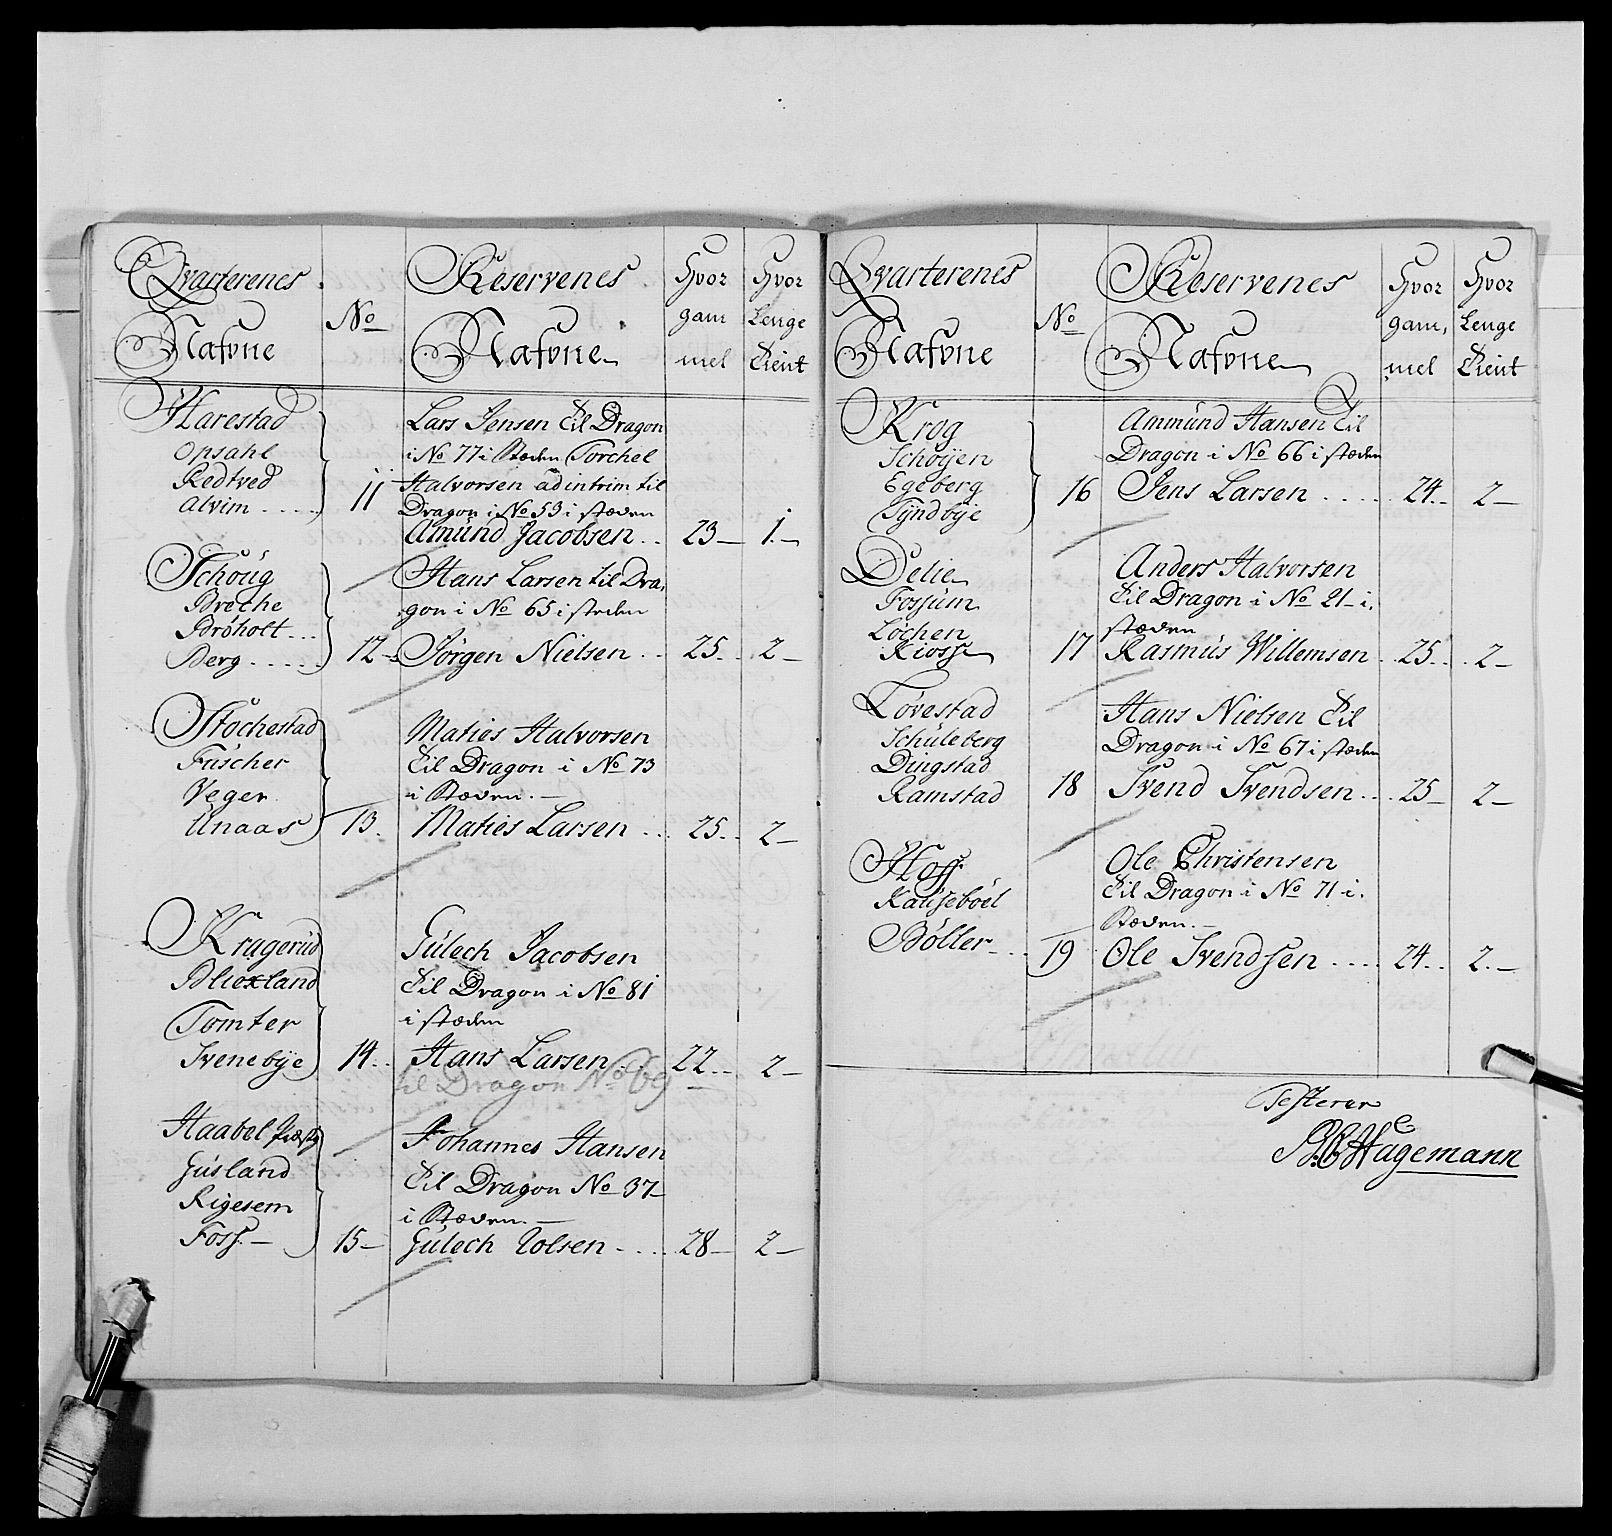 Qvarterenes
Nafvne
No
Reservenes
Nafvne
Hvor
gam
mel
Hvor
Lenge
Tient
Harestad
Opsahl
Redtved
Alvim
11
Lars Jensen Til Dragon
i No 77 i Stæden Torchel
Halvorsen ad intrim til
Dragon i No 53 i stæden
Amünd Jacobsen .. 23 — 1. —
Schoüg
Breche
Bröholt ...
Berg .....
12
Hans Larsen til Dra,
gon i No 65 i steden
Jörgen Nielsen .. 25 .. 2 —
Stochestad
Füscher
Veger
Unaas
13.
Maties Halvorsen
Til Dragon i No 73
i Stæden. —
Maties Larsen ... 25 .. 2 —
Kragerüd
Bliexland
Tomter
Svenebÿe
14 ..
Gülech Jacobsen
Til Dragon i No 81
i stæden
Hans Larsen .. 22 .. 2 —
til Dragon No 69
Haabel
Güsland
Rigesem
Foss. —
15 —
Johannes Hansen
Til Dragon No 37 —
i Stæden. —
Gülech Colsen .... 28 — 2 —
Qvarterenes
Nafvne
No
Reservenes
Nafvne
Hvor
gam,
mel
Hvor
Lenge
Tient
Krog
Schoÿen
Egeberg
Tÿndbÿe
16
Ammünd Hansen Til
Dragon i No 66 i stæden
Jens Larsen ..... 24 .. 2 —
Delie
Fossüm
Löchen
Kioss
17
Anders Halvorsen
Til Dragon i No 21 — i,
stæden
Rasmüs Willemsen .. 25 .. 2 —
Tovestad
Schüleberg
Dingstad
Ramstad
18
Hans Nielsen Til
Dragon i No 67 i stæden
Svend Svendsen ... 25 — 2 —
Hoff
Kaüseböel
Böller ...
19
Ole Christensen
Til Dragon i No 71 i,
Stæden. —
Ole Svendsen .... 24 .. 2. —
Testerer
Hagemann